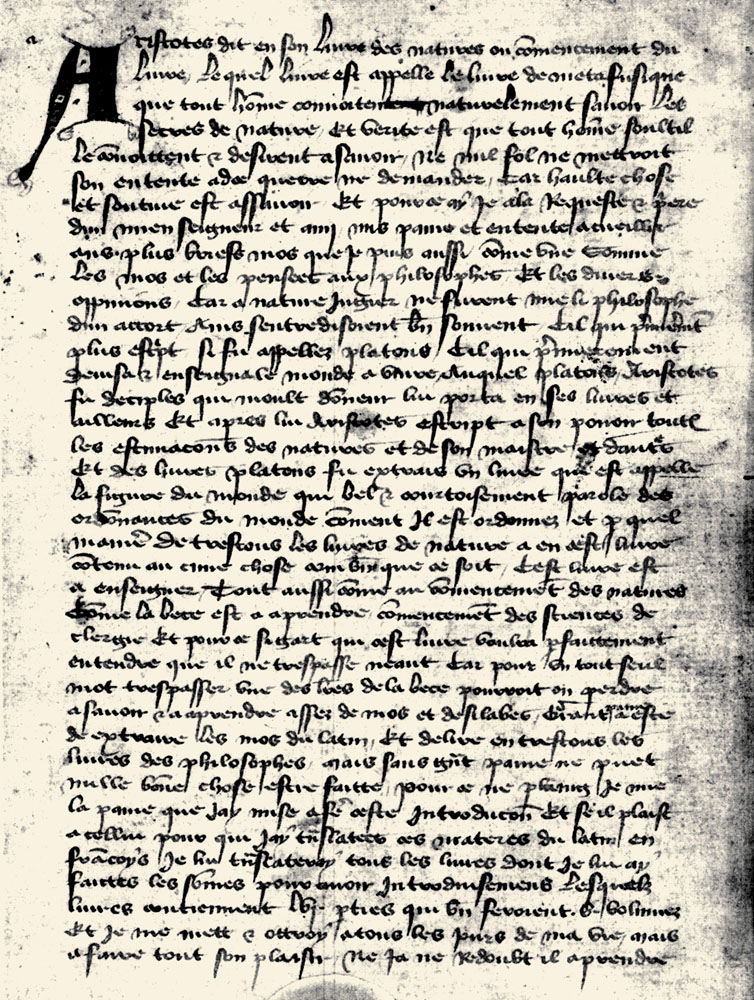 Aristotes dit en son liure des natures ou cōmencement du
liure, Le quel liure est appelle le liure de metafusique
que tout hōme conuoitent naturelement sauoir les
secres de nature, Et verite est que tout hōme soultil
le couoittent & desirent a sauoir, Ne nul fol ne mettroit
son entente a ce querre ne demander, Car haulte chose
et soutiue est assauoir, Et pour ce ay Je a la Requeste & p̄ere
dun mien seigneur et ami, mis paine et entente a cueillir
aus plus briefs mos que Je puis aussi cōme vne somme
Les mos et les pensees aux philosophes Et les diuerses
oppinions, Car a nature Jugier ne furent mie li philosophe
dun accort Ains sentredisoient bn̄ souuent Cil qui p̄mierm̄t
plus esc̄pt si fu appellez platons Cil qui p̄mierement
deuisa & enseigna le monde a viure, Auquel platons Aristotes
fu deciples qui moult dōneur lui porta en ses liures et
ailleurs Et apres lui Aristotes escript a son pouoir toutes
les estimacōns des natures et de son maistre et dautr̄s
Et des liures platons fu extrais vn liure que est appelle
la figure du monde qui bel & courtoisement parole des
ordōnances du monde cōment Il est ordonnez et p quel
manier̄ De trestous les liures de nature a en cest liure
cōtenu aucune chose combn̄ que ce soit, Cest liure est
a enseigner, Tout aussi cōme au cōmencemēt des natures
Cōme la bece est a aprendre cōmencemēt des sciences de
clergie Et pour ce si gart qui cest liure vouldra p̄faittement
entendre que il ne trespasse neant Car pour vn tout seul
mot trespasser vne des lr̄es de la bece pourroit on perdre
a sauoir & a aprendre assez de mos et de silabes, Grant paine a este
de extraire les mos du latin, Et deliure en trestous les
liures des philosophes, mais sans gr̄nt paine ne puet
nulle bōne chose estre faitte, pour ce ne plaing Je mie
la paine que Jay mise a fe ceste Introducōn Et se il plaist
a cellui pour qui Jay tn̄slatees ces materes du latin en
francoys Je lui tn̄slateroy tous les liures dont Je lui ay
faittes les sōmes pour auoir Introduisemens Lesquelz
liures contiennent lvj. p̄ties qui bn̄ feroient .v. volumez
Et Je me mett & ottroy a tous les Jours de ma vie, mais
a faire tout son plaisir, Ne Ja ne Redoubt il aprendre